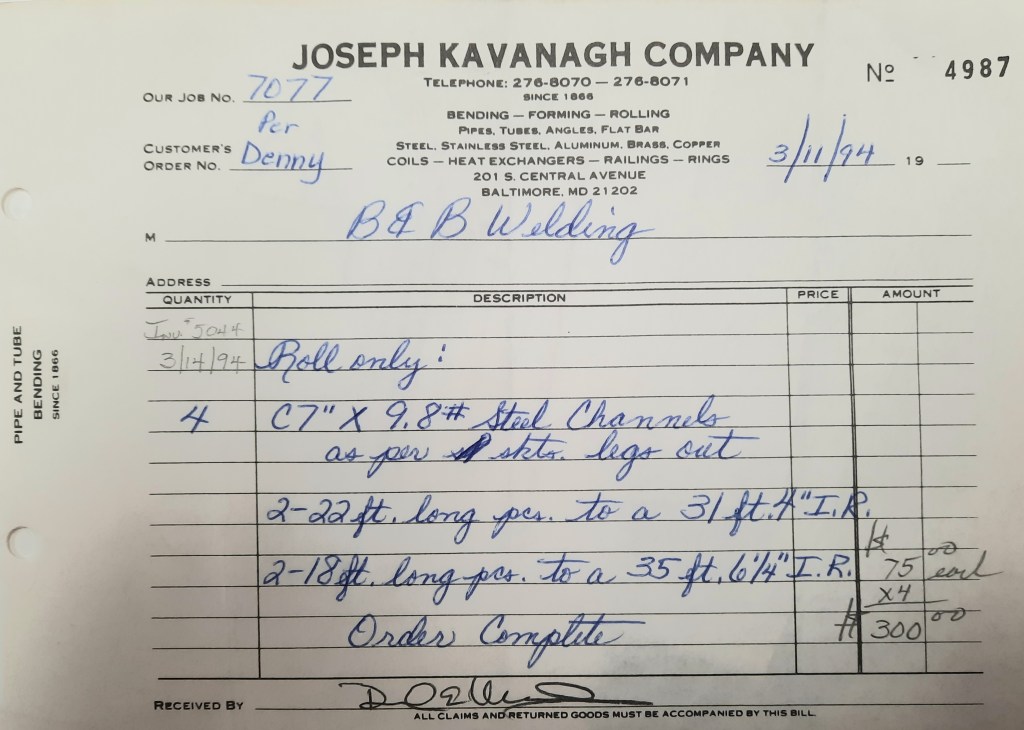 JOSEPH KAVANAGH COMPANY
Nº 4987
TELEPHONE: 276-8070 — 276-8071
SINCE 1866
OUR JOB NO. 7077
BENDING — FORMING — ROLLING
PIPES, TUBES, ANGLES, FLAT BAR
Per
STEEL, STAINLESS STEEL, ALUMINUM, BRASS, COPPER
CUSTOMER'S
ORDER NO. Denny
COILS — HEAT EXCHANGERS — RAILINGS — RINGS
3/11/94 19
201 S. CENTRAL AVENUE
BALTIMORE, MD 21202
M B & B Welding
ADDRESS
QUANTITY DESCRIPTION PRICE AMOUNT
Inv. # 5044
3/14/94 Roll only:
4 C7" X 9.8# Steel Channels
as per skts. legs out
2-22 ft. long pcs. to a 31 ft. 4" I.R.
2-18 ft. long pcs. to a 35 ft. 6 1/4" I.R. $ 75 00 each
X4
Order Complete $ 300 00
RECEIVED BY
ALL CLAIMS AND RETURNED GOODS MUST BE ACCOMPANIED BY THIS BILL.
PIPE AND TUBE
BENDING
SINCE 1866